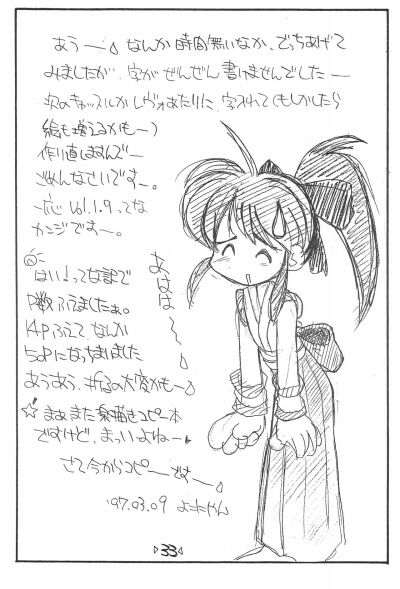 あうー。なんか時間無いなか、でっちあげて
みましたが、字がぜんぜん書けませんでしたー
次のキャッスルかレヴォあたりに、字入れて(もしかしたら
絵も増えるかもー)
作り直しますんでー
ごめんなさいですー。
一応 Vol.1.9 ってな
カンジですー。
あははー
はい!ってな訳で
P数ふえましたぁ。
14Pふえて なんか
50Pになっちまいました
あうあう、折るの大変かもー
☆まぁまた鉛筆描きコピー本
ですけど、まっいよねー
さて今からコピーですー
'97.03.09
33